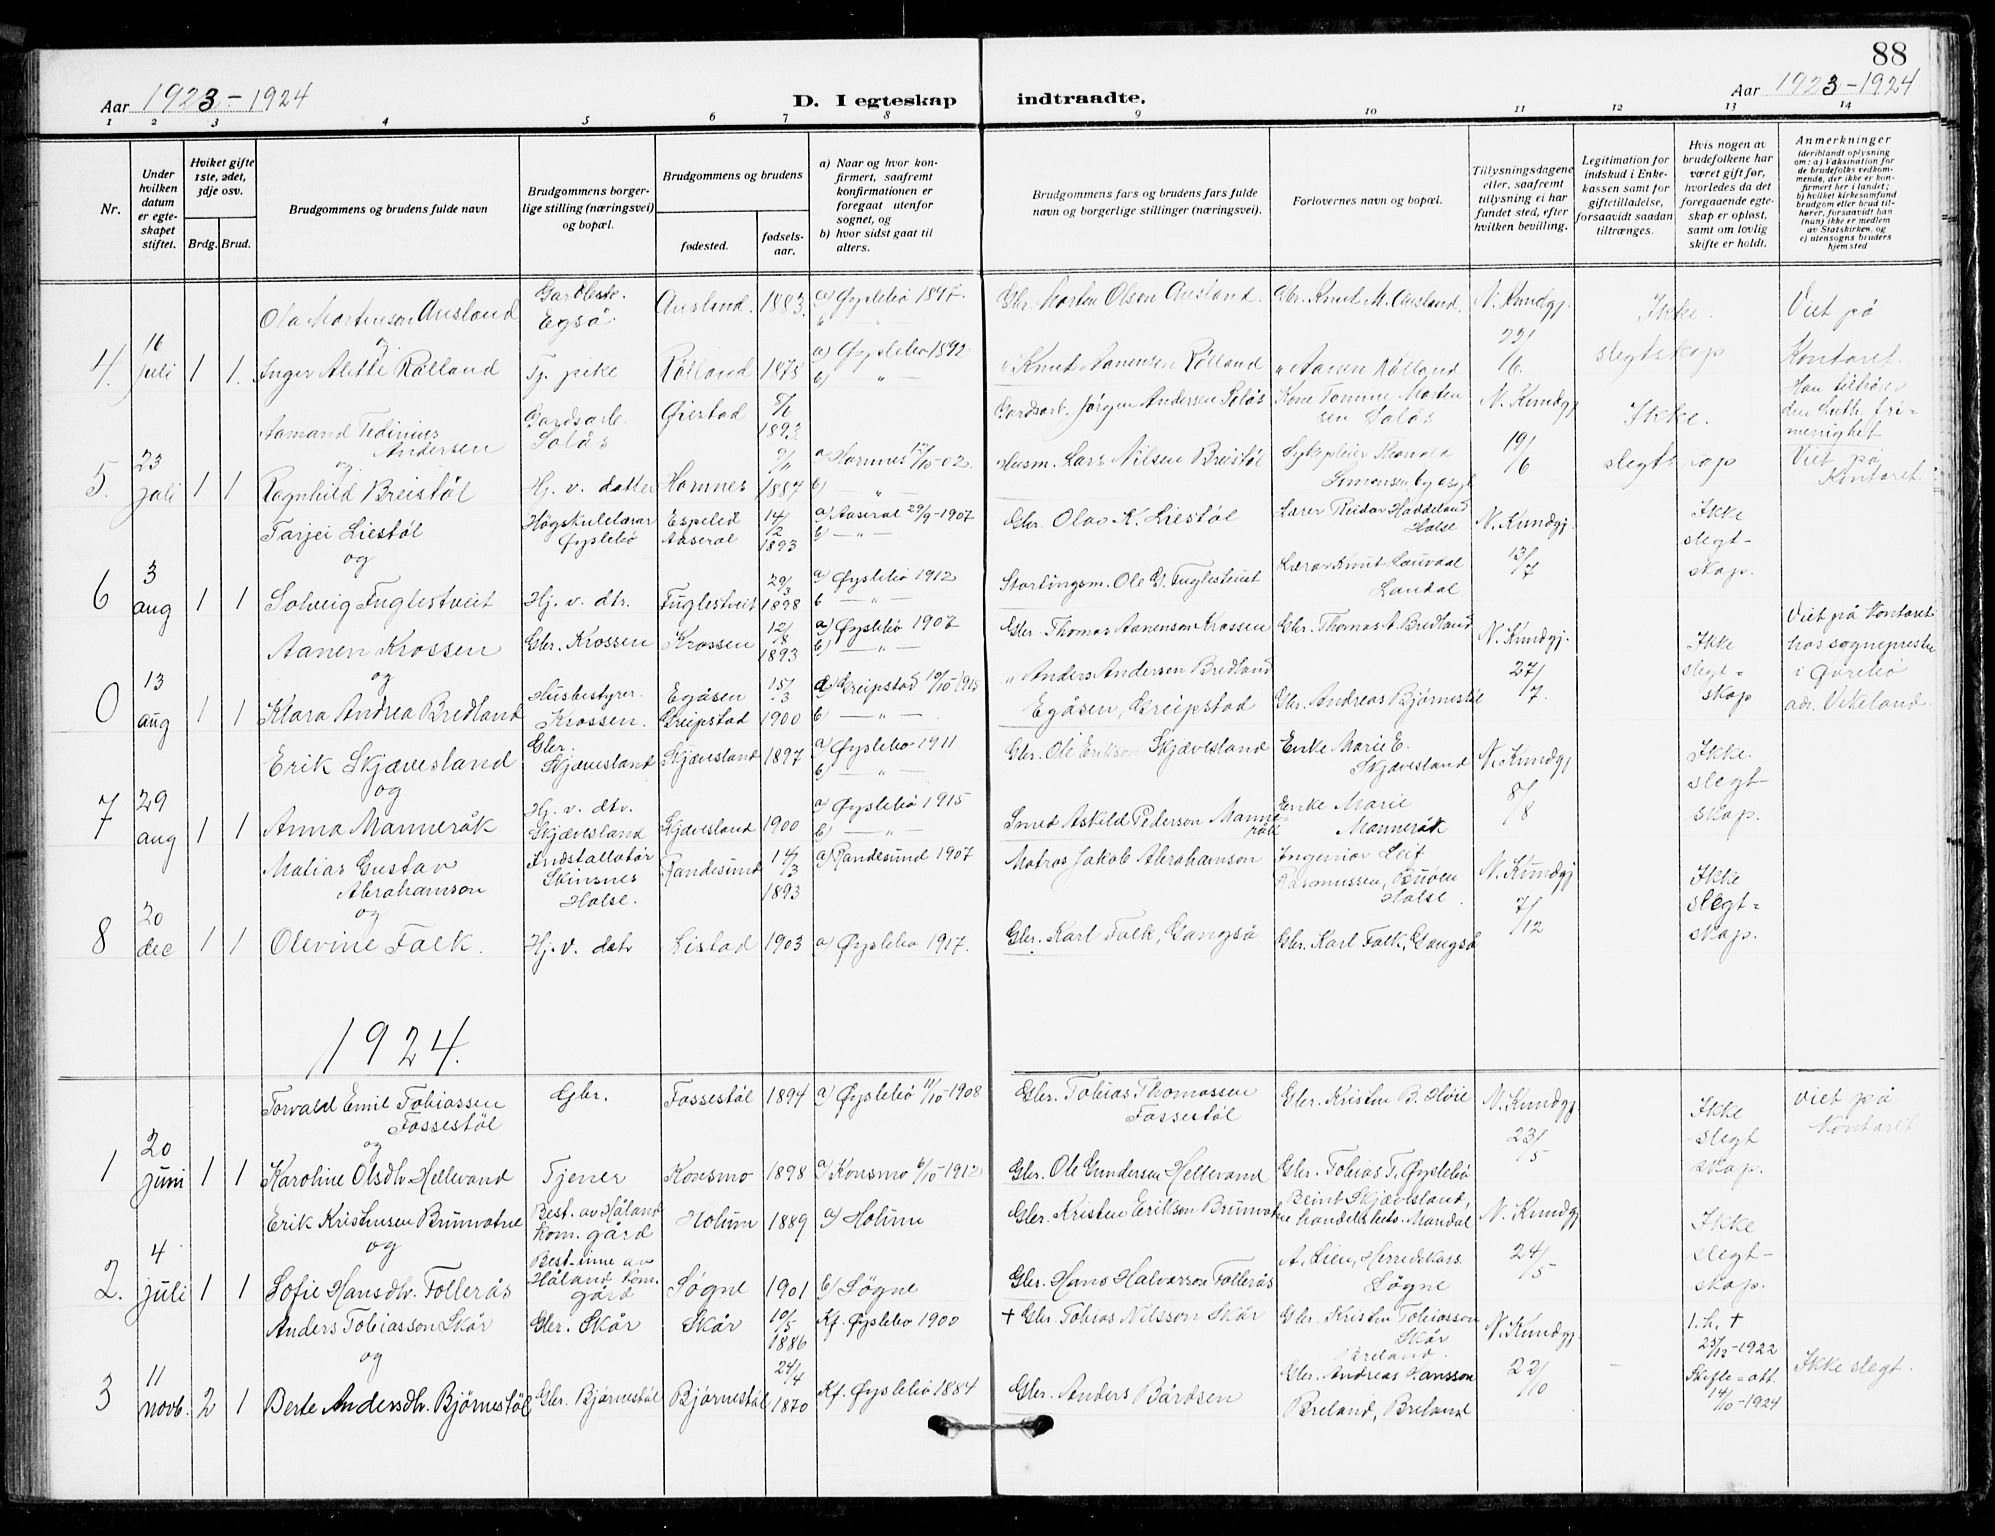 88
Aar 1923-1924
D. I egteskap
indtraadte.
Aar 1923-1924
1 2 3 4 5 6 7 8 9 10 11 12 13 14
Nr.
Under hvilken datum er egteskapet stiftet.
Hviket gifte 1ste, 2det, 3dje osv.
Brdg. Brud.
Brudgommens og brudens fulde navn
Brudgommens borgerlige stilling (næringsvei) og bopæl.
Brudgommens og brudens
fødested.
fødselsaar.
a) Naar og hvor konfirmert, saafremt konfirmationen er foregaat utenfor sognet, og
b) hvor sidst gaat til alters.
Brudgommens fars og brudens fars fulde navn og borgerlige stillinger (næringsvei).
Forlovernes navn og bopæl.
Tillysningsdagene eller, saafremt tillysning ei har fundet sted, efter hvilken bevilling.
Legitimation for indskud i Enkekassen samt for giftetilladelse, forsaavidt saadan tiltrænges.
Hvis nogen av brudefolkene har været gift før, hvorledes da det foregaaende egteskap er opløst, samt om lovlig skifte er holdt.
Anmerkninger (deriblandt oplysning om: a) Vaksination for de brudefolks vedkommende, der ikke er konfirmert her i landet; b) hvilket kirkesamfund brudgom eller brud tilhører, forsaavidt han (hun) ikke er medlem av Statskirken, og c) utensogns bruders hjemsted
Ola Mortenson Ausland Egså Ausland. 1883. a) Øyslebö 1897. Gbr. Morten Olson Ausland. Gbr. Knut M. Ausland. N. Kundgj. Ikke Viet på
og
4. 16 juli 1 1. Inger Alette Rölland Tj. pike Rölland 1878 a) Øyslebö 1892 b) " " Knut Aanensen Rölland " Aanen Rölland 23/6. slegtskap Kontoret.
Aamand Tedinius Andersen Gardsarb. Solås Øiestad 8/6 1893 Gardsarb. Jörgen Andersen Solås Kone Tomine Mortensen Solås N. Kundgj Ikke. Han tilhører den Luth. frimenighet
og
5. 23 juli 1 1 Ragnhild Breistöl Hj. v. datter Hornnes 1887 a) Hornnes 12/10-02 b) " Husm. Lars Nilsen Breistöl Sykepleier Thorvald Simonsen 19/6 slegtskap Viet på Kontoret.
Tarjei Liestöl Högskulelærar Øyslebö Espelid Aaseral 14/2 1893 a) Aaseral 29/9-1907 b) " Gbr. Olav K. Liestöl Lærer Reidar Haddeland Halse N. Kundgj. Ikke slegtskap.
og
6 3 aug 1 1 Solveig Fuglestveit Hj. v. dtr. Fuglestveit 29/3 1898 a) Øyslebö 1912 b " Stortingsm. Ole G. Fuglestveit Lærar Knut Lauvdal Laudal 13/7
Aanen Krossen Gbr. Krossen Krossen 12/8 1893 a) Øyslebö 1907 b) " Gbr. Thomas Aanenson Krossen Gbr. Thomas A. Bredland N. Kundgj. Ikke slegtskap Viet på Kontoret hos sognepresten i Øvrebö adr. Vikeland.
og
0 13 aug 1 1 Klara Andrea Bredland Husbestyrer. Krossen. Egåsen Greipstad 15/3 1900 a) Greipstad 10/10-1915 b) " " Anders Andersen Bredland Egåsen, Greipstad Gbr. Andreas Bjørnestöl 27/7.
Erik Skjævesland Gbr. Skjævesland Skjævesland 1897 a) Øyslebö 1911 b) " Gbr. Ole Erikson Skjævesland Enke Marie E. Skjævesland N. Kundgj Ikke. slegtskap.
og
7 29 aug 1 1 Anna Manneråk Hj. v. dtr. Skjævesland Skjævesland 1900 a) Øyslebö 1915 b) " Smed Askild Pederson Manneråk Enke Marie Manneråk 8/8
Matias Gustav Abrahamson Indstallatör Skinsnes Halse. Randesund 14/3 1893 a) Randesund 1907 Matros Jakob Abrahamson Ingeniør Leif Rasmussen, Buöen Halse. N. Kundgj Ikke slegtskap.
og
8 20 dec 1 1 Olevine Falk. Hj. v. datr Listad 1903 a) Øyslebo 1917. Gbr. Karl Falk, Gangså Gbr. Karl Falk, Gangså 7/12
1924.
Torvald Emil Tobiassen Fossestöl Gbr. Fossestöl 1894 a) Øyslebö 11/10-1908 Gbr. Tobias Thomassen Fossestöl Gbr. Kristen B. Höie N. Kundgj Ikke slegtskap. Viet på Kontoret
og
1 20 juni 1 1 Karoline Olsdtr Hellevand Tjener Konsmo 1898 a) Konsmo 6/10-1912 Gbr. Ole Gundersen Hellevand Gbr. Tobias T. Øyslebö 23/5
Erik Kristensen Brunvatne Best. av Håland kom. gård Holum 1889 a) Holum Gbr. Kristen Erikson Brunvatne Beint Skjævesland, handelsbets. Mandal N. Kundgj Ikke slegtskap.
og
2. 4 juli 1 1 Sofie Hansdtr. Follerås Best-inne av Håland kom. gård Søgne 1901 b) Søgne Gbr. Hans Halvorson Follerås A. Lien, Herredskass. Søgne 24/5
Anders Tobiasson Skår Gbr. Skår Skår 10/5 1886 Kf. Øyslebo 1900 + Gbr. Tobias Nilsson Skår Gbr. Kristen Tobiasson Skår Breland. N. Kundgj 1. h. + 25/12-1922 Skifte-att. 14/10-1924 Ikke slegt.
og
3 11 novb. 2 1 Berte Andersdtr. Bjørnestøl Gbr. Bjørnestøl Bjørnestøl 24/4 1870 Kf. Øyslebö 1884 Gbr. Anders Bårdsen Gbr. Andreas Hansson Breland, Breland 22/10